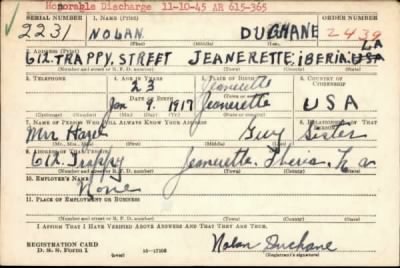 Honorable Discharge 11-10-45 AR 615-365
SERIAL NUMBER 1. NAME (Print) ORDER NUMBER
2231 NOLAN DUCHANE 2439
(First) (Middle) (Last)
2. ADDRESS (Print) LA
612. TRAPPY, STREET JEANERETTE, IBERIA. USA
(Number and street or R. F. D. number) (Town) (County) (State)
3. TELEPHONE 4. AGE IN YEARS 5. PLACE OF BIRTH 6. COUNTRY OF CITIZENSHIP
23 Jeanerette
DATE OF BIRTH
Jan 9. 1917 Jeanerette USA
(Exchange) (Number) (Mo.) (Day) (Yr.) (State or country)
7. NAME OF PERSON WHO WILL ALWAYS KNOW YOUR ADDRESS 8. RELATIONSHIP OF THAT PERSON
Mrs Hazel Guy Sister
(Mr., Mrs., Miss) (First) (Middle) (Last)
9. ADDRESS OF THAT PERSON
612. Trappy Jeanerette. Iberia. La
(Number and street or R. F. D. number) (Town) (County) (State)
10. EMPLOYER'S NAME
None
11. PLACE OF EMPLOYMENT OR BUSINESS
(Number and street or R. F. D. number) (Town) (County) (State)
I AFFIRM THAT I HAVE VERIFIED ABOVE ANSWERS AND THAT THEY ARE TRUE.
REGISTRATION CARD
D. S. S. Form 1 16-17105 Nolan Duchane
(Registrant's signature)